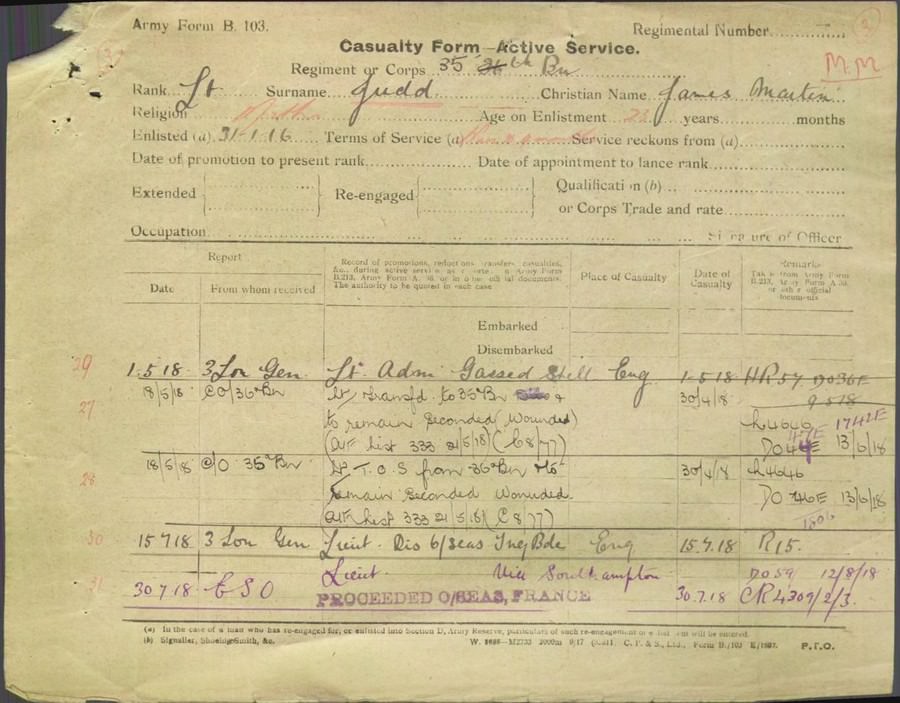 Army Form B. 103.
Regimental Number
Casualty Form—Active Service.
M.M
Regiment or Corps 35 36th Bn
Rank Lt Surname Judd Christian Name James Martin
Religion Age on Enlistment years months
Enlisted (a) 31-1-16 Terms of Service (a) Service reckons from (a)
Date of promotion to present rank Date of appointment to lance rank
Extended Re-engaged Qualification (b)
or Corps Trade and rate
Occupation Signature of Officer
Report
Date From whom received
Record of promotions, reductions, transfers, casualties, &c., during active service, as reported on Army Form B.213, Army Form A. 36, or in other official documents. The authority to be quoted in each case
Place of Casualty
Date of Casualty
Remarks
Taken from Army Form B.213, Army Form A.36, or other official documents
Embarked
Disembarked
29 1.5.18 3 Lon Gen Lt Adm Gassed Shell Eng 1-5-18 HR57 DO36E
9 5 18
27 18/5/18 CO/36 Bn Lt Transfd to 35 Bn &
30/4/18
to remain Seconded (Wounded) h4646 1742E
(AIF List 333 21/5/18) (C8/77) DO 44E 13/6/18
28 18/5/18 C/O 35 Bn Lt T.O.S from 36 Bn to 30/4/18 h4646
remain Seconded Wounded DO 46E 13/6/18
(AIF List 333 21/5/18) (C8/77) 1806
30 15 7 18 3 Lon Gen Lieut. Dis O/seas Trg Bde Eng 15.7.18 R15.
31 30.7.18 CSO Lieut Via Southampton DO59 12/8/18
PROCEEDED O/SEAS, FRANCE 30.7.18 CR4309/2/3.
(a) In the case of a man who has re-engaged for, or enlisted into Section D, Army Reserve, particulars of such re-engagement or enlistment will be entered.
(b) Signaller, Shoeing-Smith, &c. P.T.O.